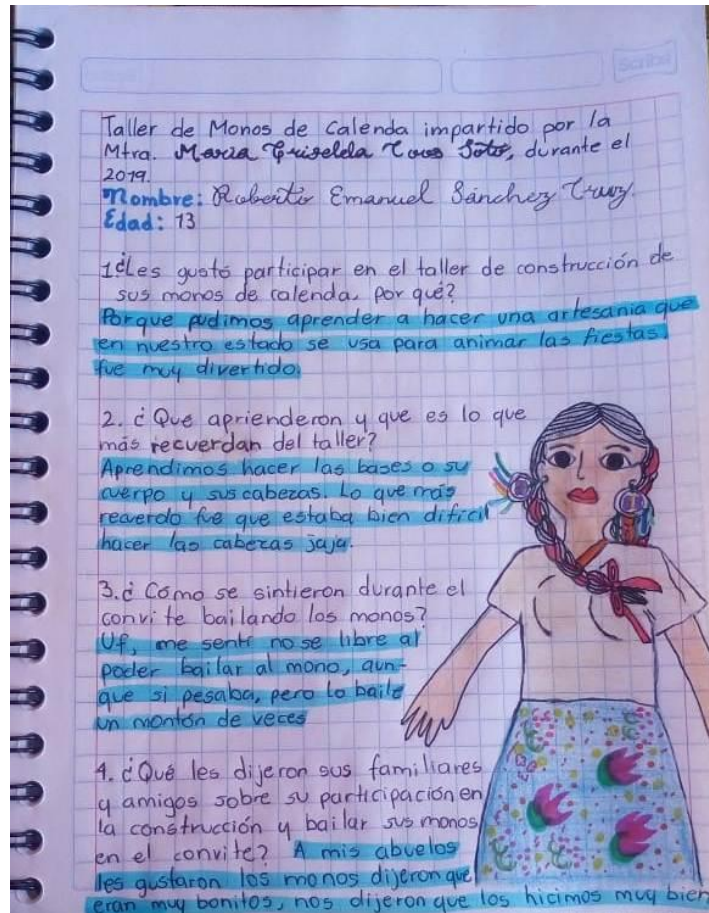 Scribe
Taller de Monos de Calenda impartido por la
Mtra. Maria Griselda Soto, durante el
2019.
Nombre: Roberto Emanuel Sánchez
Edad: 13
1¿Les gustó participar en el taller de construcción de
sus monos de calenda, por qué?
Porque pudimos aprender a hacer una artesania que
en nuestro estado se usa para animar las fiestas.
fue muy divertido.
2. ¿Que aprienderon y que es lo que
más recuerdan del taller?
Aprendimos hacer las bases o su
cuerpo y sus cabezas. Lo que más
recuerdo fue que estaba bien dificil
hacer las cabezas jaja.
3.¿Cómo se sintieron durante el
convite bailando los monos?
Uf, me sentí no se libre al
poder bailar al mono, aun-
que si pesaba, pero lo baile
un montón de veces
4. ¿Qué les dijeron sus familiares
y amigos sobre su participación en
la construcción y bailar sus monos
en el convite? A mis abuelos
les gustaron los monos dijeron que
eran muy bonitos, nos dijeron que los hicimos muy bien